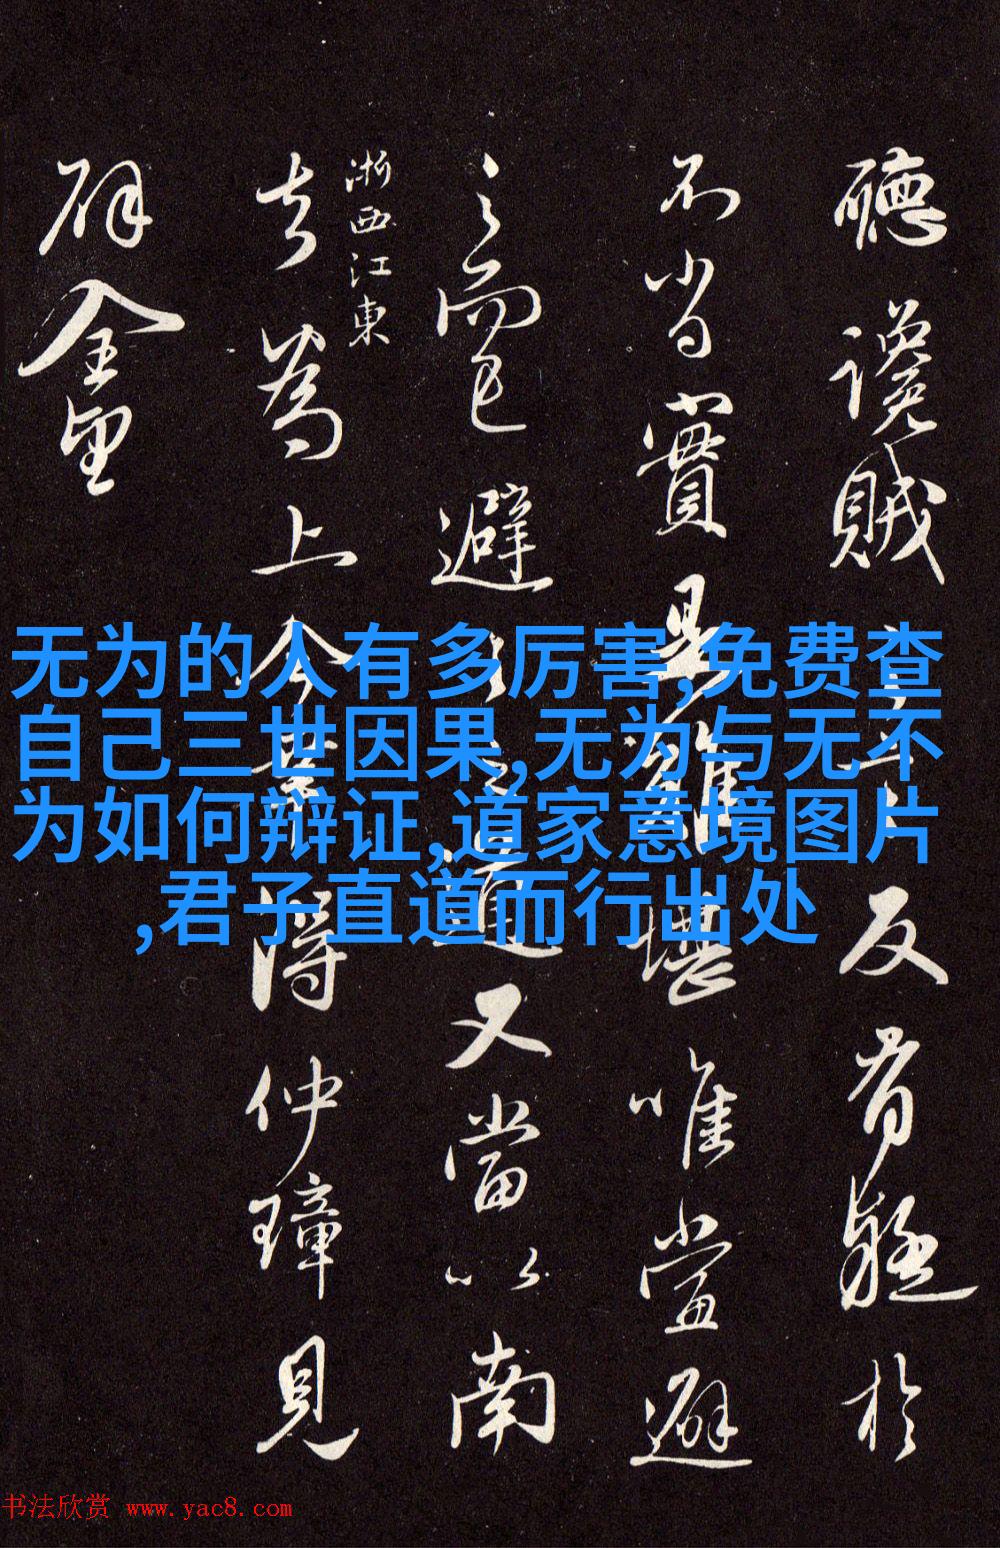 聽讒賊反疑於
不實是難堪唯當避
之而已避又當以南
浙西江東
去為上今得仲璋見
辟金
无为的人有多厉害,免费查
自己三世因果,无为与无不
为如何辩证,道家意境图片
,君子直道而行出处
书法欣赏 www.yac8.com